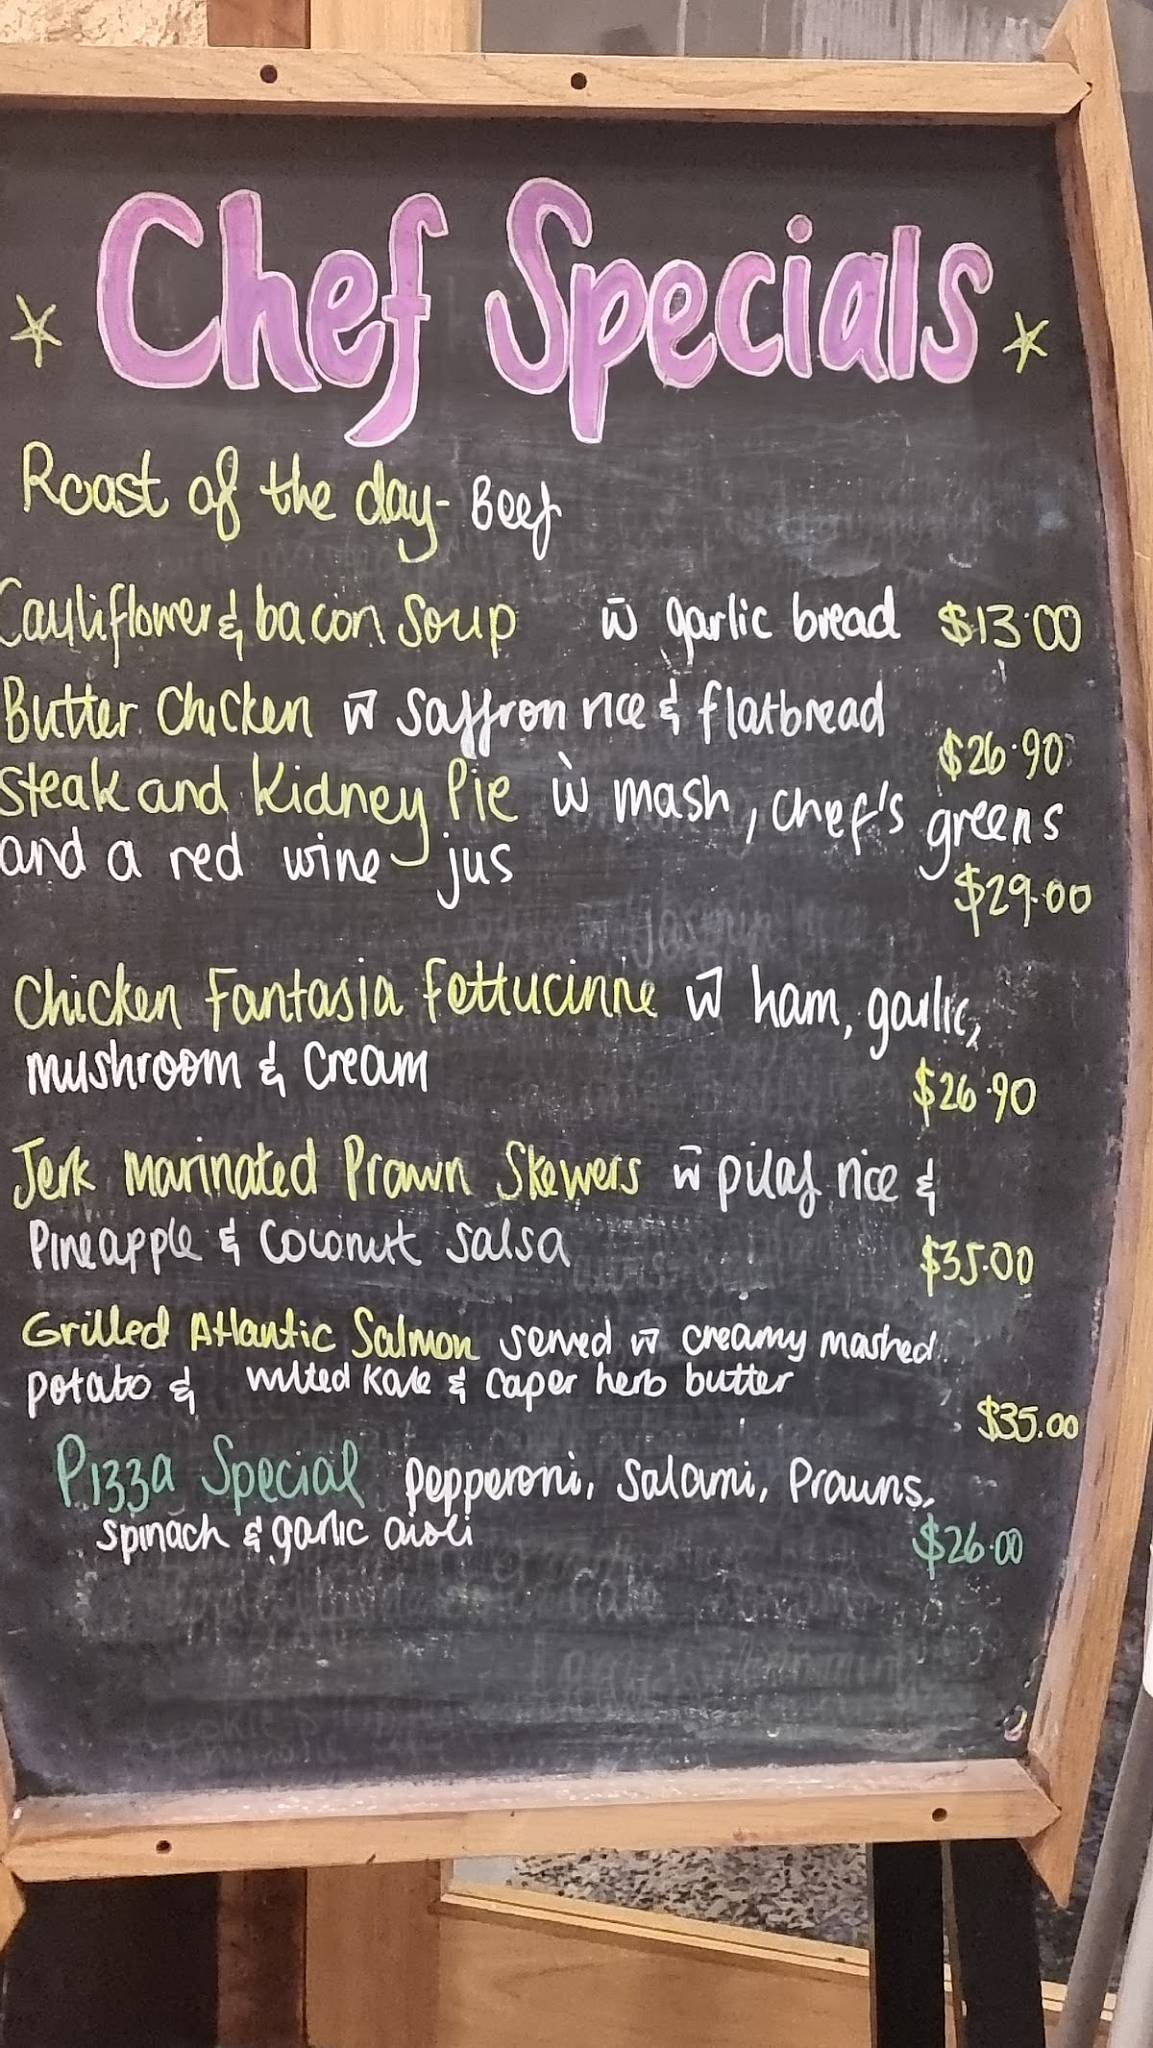 Chef Specials
Roast of the day - Beef
Cauliflower & bacon Soup w garlic bread $13.00
Butter Chicken w Saffron rice & flatbread
$26.90
Steak and Kidney Pie w mash, chef's greens
and a red wine jus
$29.00
Chicken Fantasia Fettucinne w ham, garlic,
mushroom & cream
$26.90
Jerk Marinated Prawn Skewers w pilaf rice &
Pineapple & Coconut Salsa
$35.00
Grilled Atlantic Salmon served w creamy mashed
potato & wilted Kale & caper herb butter
$35.00
Pizza Special Pepperoni, Salami, Prawns,
spinach & garlic aioli
$26.00